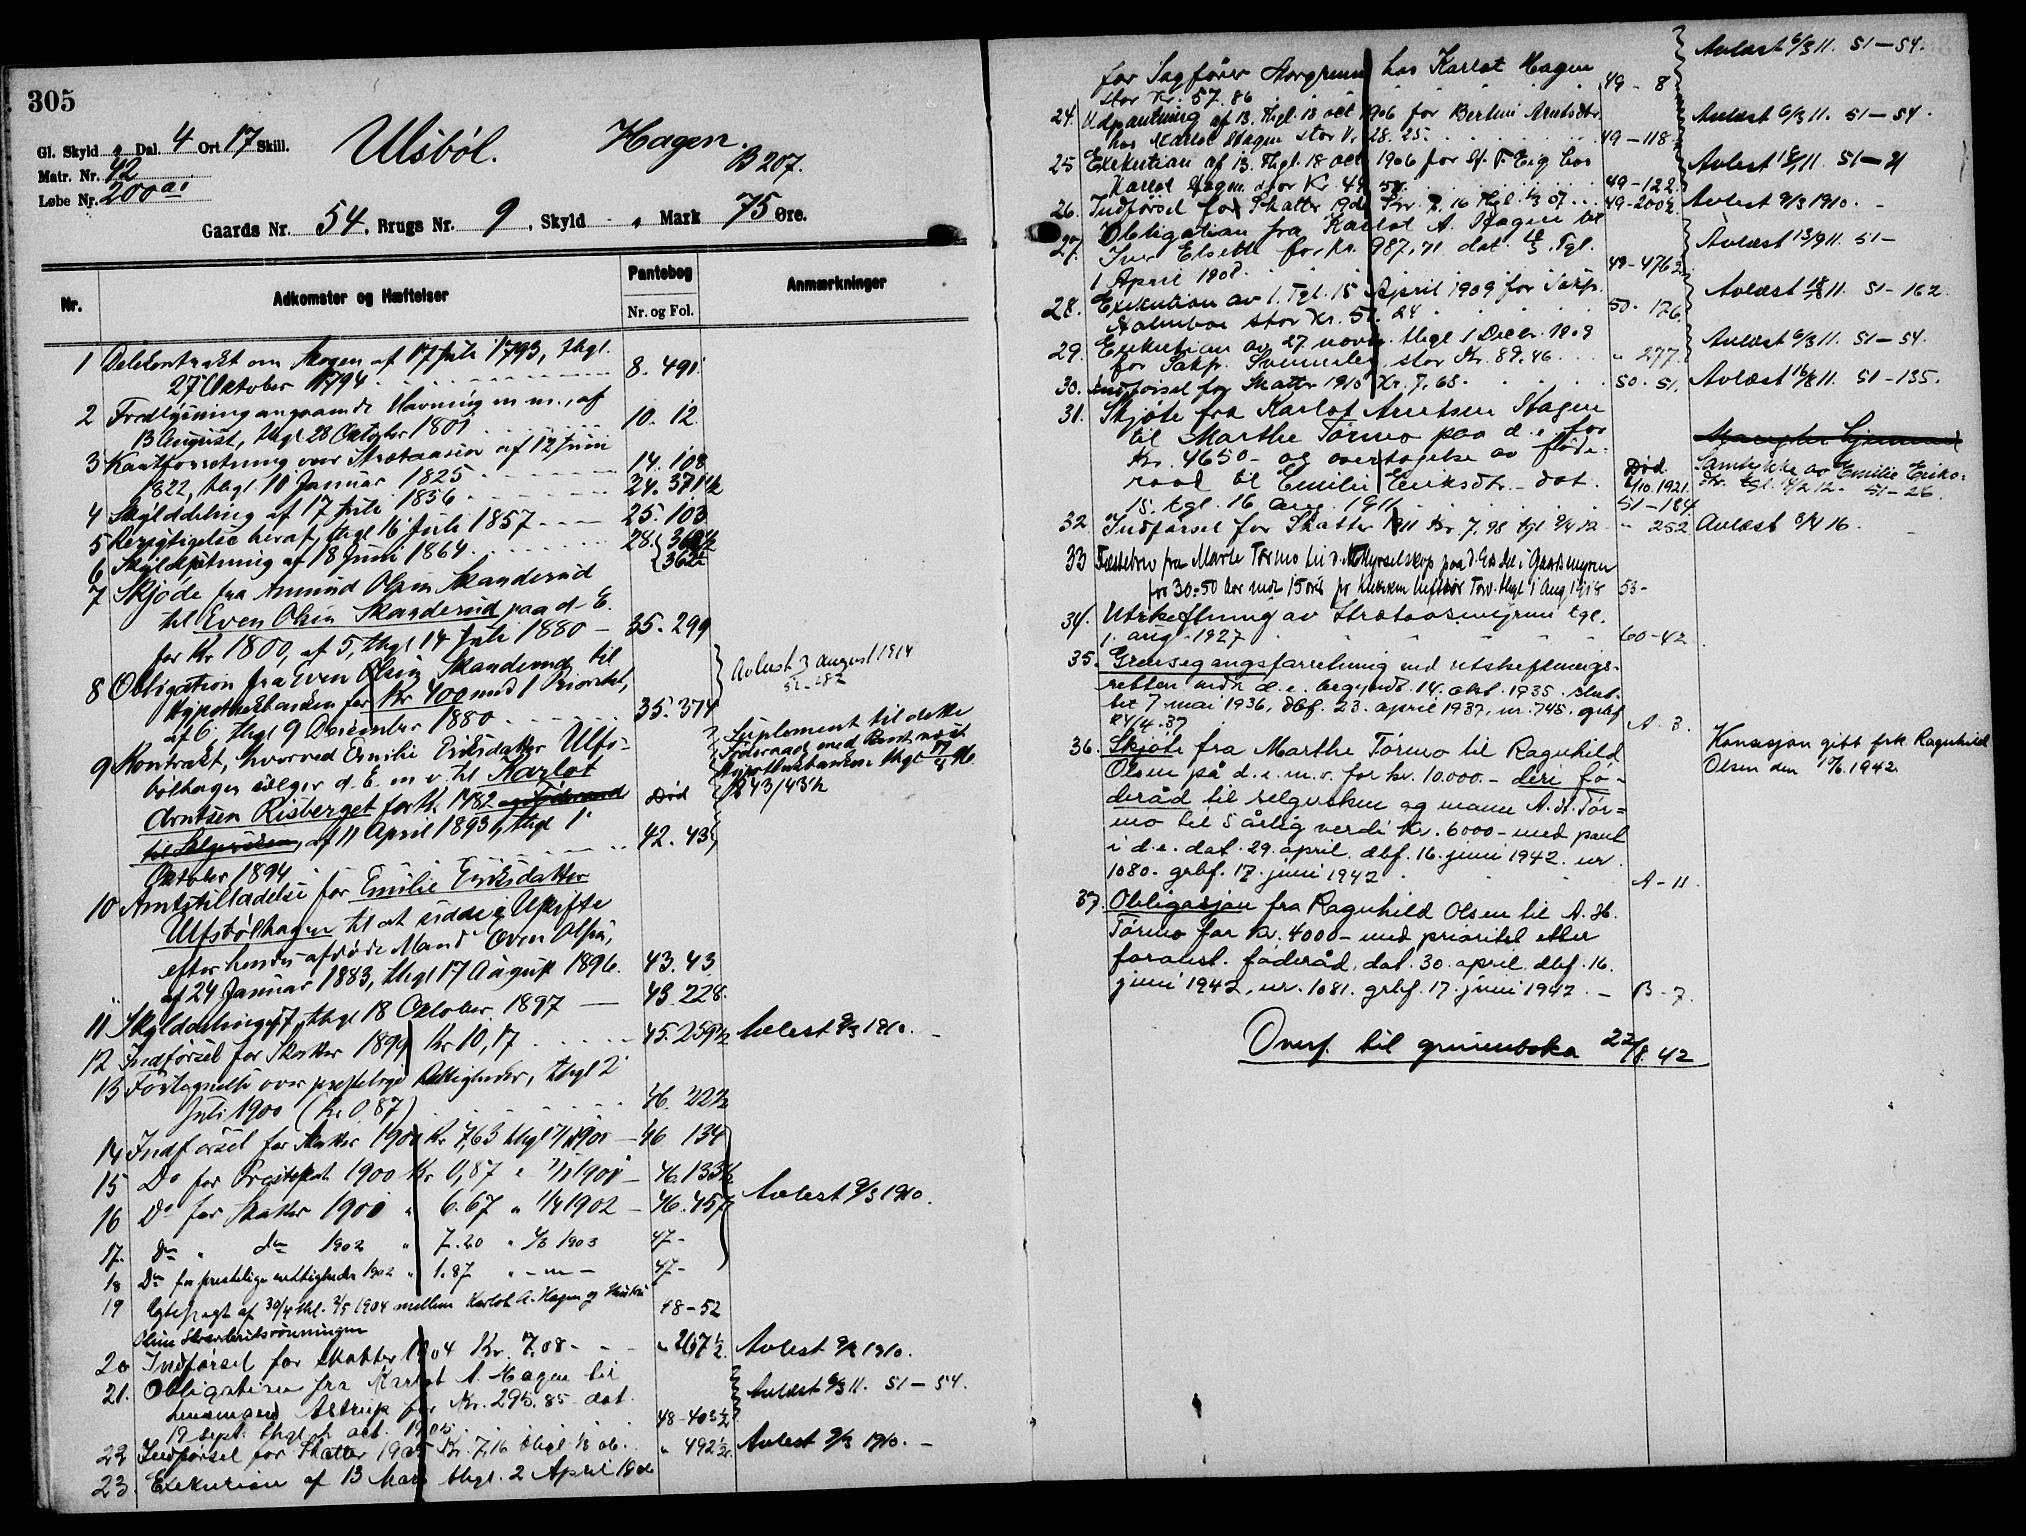 305
Gl. Skyld " Dal. 4 Ort 17 Skill.
Matr. Nr. 42
Løbe Nr. 200 a1
Ulsböl. Hagen.
B 207.
Gaards Nr. 54, Brugs Nr. 9, Skyld " Mark 75 Øre.
Nr. Adkomster og Hæftelser Pantebog Nr. og Fol. Anmærkninger
1 Delekontrakt om Skogen af 17 Juli 1793, thgl.
27 Oktober 1794 8. 491
2 Fredlysning angaaende Havning m.m., af
13 August, thgl 28 Oktober 1801 10. 12.
3 Kartforretning over Strætaasen af 12 Juni 14. 108
1822, thgl. 10 Januar 1825 24. 371 1/2
4 Skylddeling af 17 Juli 1856 25. 103
5 Berigtigelse heraf, thgl 16 Juli 1857 28.
6 Skyldsætning af 18 Juni 1864 362
7 Skjøde fra Amund Olsen Skanderud
til Even Olsen Skanderud paa d. E.
for Kr 1800, af 5, thgl 14 Juli 1880 — 35. 299
8 Obligation fra Even Olsen Skanderud til
Hypothekbanken for Kr 400 med 1 Prioritet,
af 6. thgl 9 December 1880 35. 374
Avlest 3 august 1914
52-282
9 Kontrakt, hvorved Emilie Eriksdatter Ulfs-
bölhagen sælger d. E. m. v. til Karlot
Arntsen Risberget for Kr. 1482 og Föderaad
til Sælgersken, af 11 April 1893, thgl 1
Oktober 1894 42. 43
Död
Suplement til dette
Föderaad med
Hypothekbanken thgl
B 43/43 1/2
10 Amtstilladelse for Emilie Eriksdatter
Ulfsbölhagen til at sidde i Uskifte
efter hendes afdöde Mand Even Olsen,
af 24 Januar 1883, thgl 17 August 1896. 43. 43
11 Skylddeling thgl 18 Oktober 1897 — 43. 228.
12 Indførsel for Skatter 1899 Kr 10,17 45. 259 1/2 Avlest 9/3 1910. -
13 Fortegnelse over prestelige Rettigheder, thgl 2
Juli 1900 (Kr 0.87) 46. 22 1/2
14 Indførsel for Skatter 1900 Kr 7,63 thgl 1901 — 46. 134
15 Do for Presteskat 1900 Kr 0,87 " 1901 — 46. 133 1/2
16 Do for Skatter 1901 " 6.67 " 1/4 1902 — 46. 457
Avlest 9/3 1910.
17. Do " do 1902 " 7.20 " 1903 47-
18 Do for prestelige rettigheder 1902 " 1.87 " — " — 47-
19 Egtepagt af 30/4 thl. 2/5 1904 mellem Karlot A. Hagen og Hustru
48-52
20 Indførsel for skatter 1904 Kr. 7.08 - " 267 1/2 Avlest 9/3 1910.
21. Obligation fra Karlot A. Hagen til
Lensmand Astrup for Kr. 295.85 dat.
19 sept. thgl. oct. 1905. 48-403 1/2 Avlæst 6/3 11. 51-54.
22 Indførsel for Skatter 1905 Kr. 7.16 thgl 1/3 06. " 492 1/2. Avlest 9/3 1910. -
23. Exekution af 13 Mars thgl. 2 April 1906
for Sagfører Norgreen hos Karlot Hagen
stor Kr. 57.86 49 - 8 Avlæst 6/3 11. 51-54.
24. Udpantning af 13. thgl. 18 oct 1906 for Bertine Arntsdtr.
hos Karlot Hagen stor Kr. 28.25. 49-118 Avlæst 6/3 11. 51-54.
25 Exekution af 13. thgl. 18 oct 1906 for hos
Karlot Hagen stor Kr. 49 49-122. Avlest 11. 51-21
26. Indførsel for Skatter 1906 Kr. 7.16 thgl. 1/3 07. 49-200 1/2. Avlest 9/3 1910. -
27. Obligation fra Karlot A. Hagen til
Iver Elseth for kr. 987,71 dat. Tgl.
1 April 1908. 49-476 Avlæst 13/9 11. 51-
28. Exekution av 1. Tgl. 15 April 1909 for Sakf.
Holmboe stor Kr. 24 50-176. Avlæst 11. 51-162.
29. Exekution av 27 novbr. thgl 1 Decbr. 1909
for Sakf. stor Kr. 89.46 " 277. Avlæst 6/3 11. 51-54.
30. Indførsel for Skatter 1910 Kr. 7.68. 50. 51. Avlæst 16/8 11. 51-135.
31. Skjøte fra Karlot Arntsen Hagen
til Marthe Tørmo paa d. e. for
Kr. 4650.- og overtagelse av føde-
raad til Emilie Eriksdtr. - dat.
15. tgl. 16 aug. 1911 51-184
Død
1921.
Samtykke av Emilie Eriks-
dtr. tgl. 51-26.
32. Indførsel for Skatter 1911 Kr. 7.98 tgl " 252 Avlæst 3/4 16
33 Fæstebrev fra Marte Tørmo til paa d. Eis del i Gaardsmyren
for 30-50 Aar mod 15 øre pr Thgl 1 Aug 1918 53-
34. Utskiftning av Strætaasmyren tgl.
1. aug. 1927 60-42.
35. Grensegangsforretning ved utskiftnings-
retten vedr. d.e. begyndt. 14. okt. 1935. slut-
tet 7 mai 1936, dbf. 23. april 1937, nr. 745. grbf
24/4.37 A. 3.
36. Skjøte fra Marthe Tørmo til Ragnhild
Olsen på d.e. m.v. for kr. 10.000.- deri fø-
deråd til selgersken og mann A. H. Tør=
mo til 5 årlig verdi Kr. 6000.- med pant
i d.e. dat. 29. april, dbf. 16. juni 1942. nr.
1080. grbf. 17. juni 1942 A-11.
Konsesjon gitt frk. Ragnhild
Olsen den 1942.
37. Obligasjon fra Ragnhild Olsen til A. H.
Tørmo for kr. 4000.- med prioritet etter
føderåd, dat. 30. april. dbf. 16.
juni 1942, nr. 1081. grbf. 17. juni 1942. - B-7.
Overf. til grunnboka 22/8.42